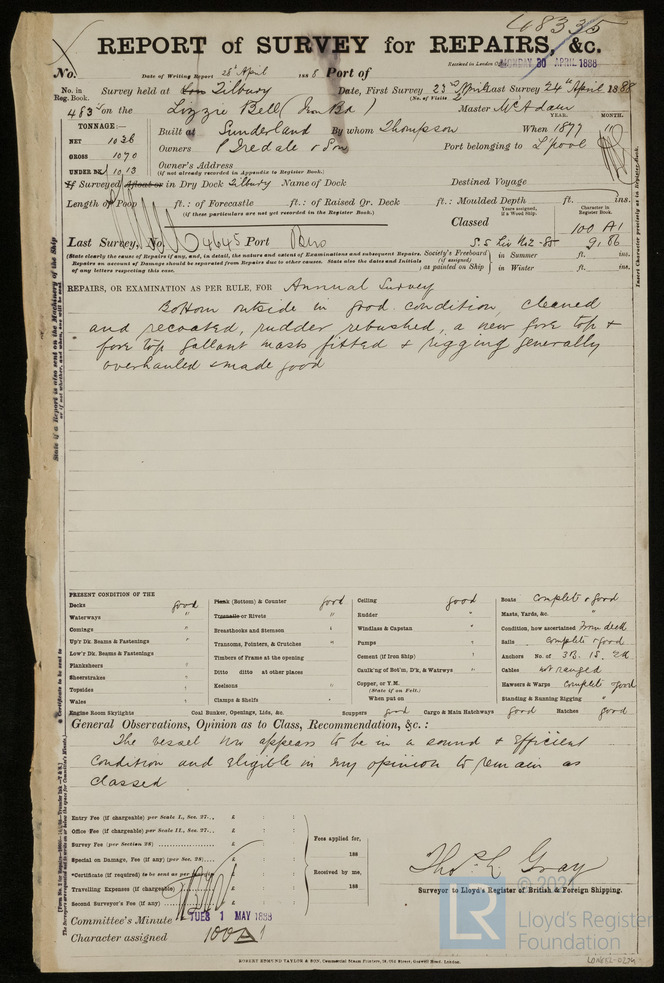 48335
REPORT of SURVEY for REPAIRS, &c.
No. Date of Writing Report 28th April 1888 Port of Received in London Office MONDAY 30 APRIL 1888
No. in Reg. Book. Survey held at Lon Tilbury Date, First Survey 23rd April Last Survey 24th April 1888
(No. of Visits 2
483 on the Lizzie Bell (Iron Bk) Master McAdam
TONNAGE:— YEAR. MONTH.
NET 1036 Built at Sunderland By whom Thompson When 1877
GROSS 1070 Owners P Iredale & Son Port belonging to L'pool
UNDER DK. 1013 Owner's Address
(if not already recorded in Appendix to Register Book.)
If Surveyed Afloat or in Dry Dock Tilbury Name of Dock Destined Voyage
Length of Poop ft.: of Forecastle ft.: of Raised Qr. Deck ft.: Moulded Depth ft. ins.
(if these particulars are not yet recorded in the Register Book.)
Years assigned, if a Wood Ship. Character in Register Book.
Classed 100 A1
Last Survey, No. 4645 Port Bro S.S. Liv No2 -85 9.86
(State clearly the cause of Repairs if any, and, in detail, the nature and extent of Examinations and subsequent Repairs.
Repairs on account of Damage should be separated from Repairs due to other causes. State also the dates and Initials
of any letters respecting this case.
Society's Freeboard (if assigned) as painted on Ship in Summer ft. ins.
in Winter ft. ins.
REPAIRS, OR EXAMINATION AS PER RULE, FOR Annual Survey
Bottom outside in good condition, cleaned
and recoated, rudder rebushed, a new fore top &
fore top gallant masts fitted & rigging generally
overhauled & made good
PRESENT CONDITION OF THE
Decks good
Waterways "
Comings "
Up'r Dk. Beams & Fastenings "
Low'r Dk. Beams & Fastenings
Planksheers "
Sheerstrakes "
Topsides "
Wales "
Engine Room Skylights
Plank (Bottom) & Counter good
Treenails or Rivets "
Breasthooks and Sternson "
Transoms, Pointers, & Crutches "
Timbers of Frame at the opening
Ditto ditto at other places
Keelsons "
Clamps & Shelfs "
Coal Bunker, Openings, Lids, &c.
Ceiling good
Rudder "
Windlass & Capstan "
Pumps "
Cement (if Iron Ship) "
Caulk'ng of Bot'm, D'k, & Watrwys "
Copper, or Y.M.
(State if on Felt.)
When put on
Scuppers good Cargo & Main Hatchways good Hatches good
Boats complete & good
Masts, Yards, &c. "
Condition, how ascertained From deck
Sails complete & good
Anchors No. of 3B. 1S. 2K
Cables not ranged
Hawsers & Warps complete & good
Standing & Running Rigging "
General Observations, Opinion as to Class, Recommendation, &c.:
The vessel now appears to be in a sound & efficient
condition and eligible in my opinion to remain as
classed
Entry Fee (if chargeable) per Scale I., Sec. 27... £ : :
Office Fee (if chargeable) per Scale II., Sec. 27... £ : :
Survey Fee (per Section 28) £ : :
Special on Damage, Fee (if any) (per Sec. 28)... £ : :
*Certificate (if required) to be sent as per margin £ : :
Travelling Expenses (if chargeable) £ : :
Second Surveyor's Fee (if any) £ : :
Fees applied for,
188
Received by me,
188
Thos. L. Gray
Surveyor to Lloyd's Register of British & Foreign Shipping.
Committee's Minute TUES 1 MAY 1888
Character assigned 100 A 1
ROBERT EDMUND TAYLOR & SON, Commercial Steam Printers, 19, Old Street, Goswell Road, London.
LR
Lloyd's Register
Foundation